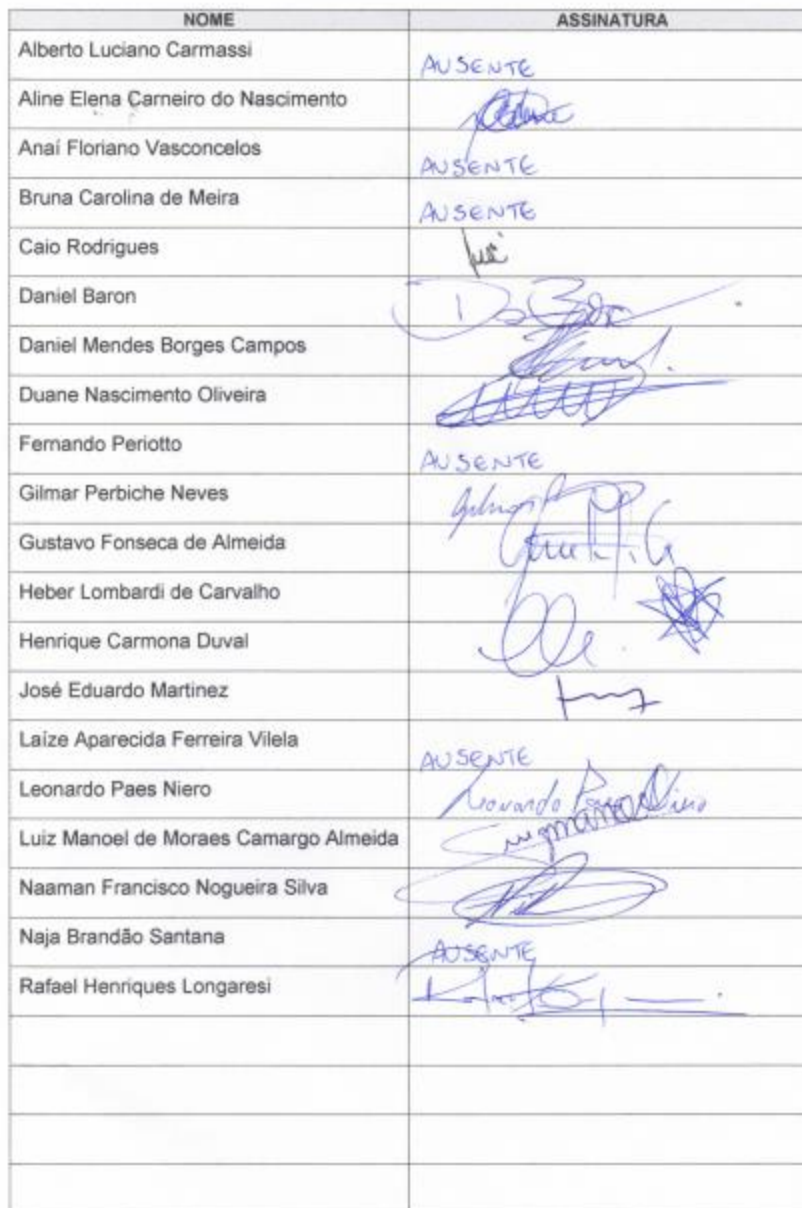 NOME ASSINATURA
Alberto Luciano Carmassi AUSENTE
Aline Elena Carneiro do Nascimento
Anaí Floriano Vasconcelos AUSENTE
Bruna Carolina de Meira AUSENTE
Caio Rodrigues
Daniel Baron
Daniel Mendes Borges Campos
Duane Nascimento Oliveira
Fernando Periotto AUSENTE
Gilmar Perbiche Neves
Gustavo Fonseca de Almeida
Heber Lombardi de Carvalho
Henrique Carmona Duval
José Eduardo Martinez
Laíze Aparecida Ferreira Vilela AUSENTE
Leonardo Paes Niero Leonardo
Luiz Manoel de Moraes Camargo Almeida
Naaman Francisco Nogueira Silva
Naja Brandão Santana AUSENTE
Rafael Henriques Longaresi